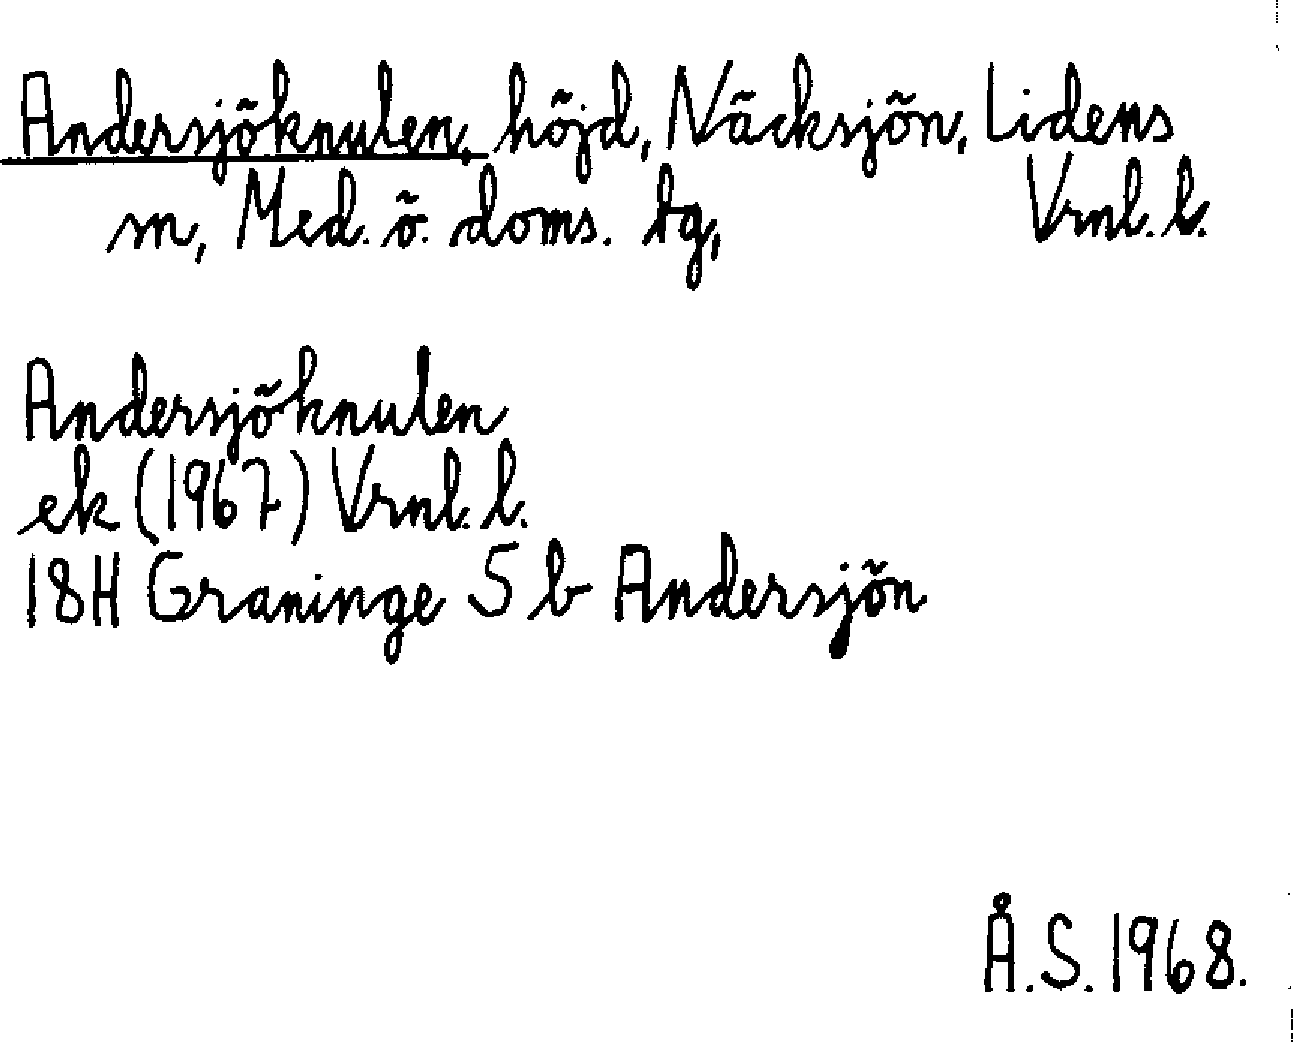 Andersjöknulen, höjd, Näcksjön, Lidens
m, Med. ö. doms. tg, Vrnl. l.
Andersjöknulen
ek (1967) Vrnl. l.
18H Graninge S b Andersjön
Å.S. 1968.